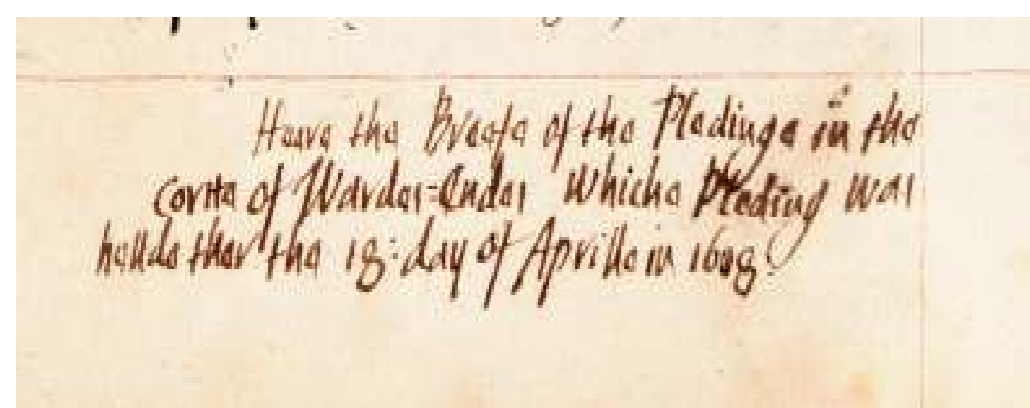 Heare the Breefe of the Pledinge in the
Cortte of Wardes-Endes Whiche Pleding was
hellde ther the 18: day of Aprille in 1608: